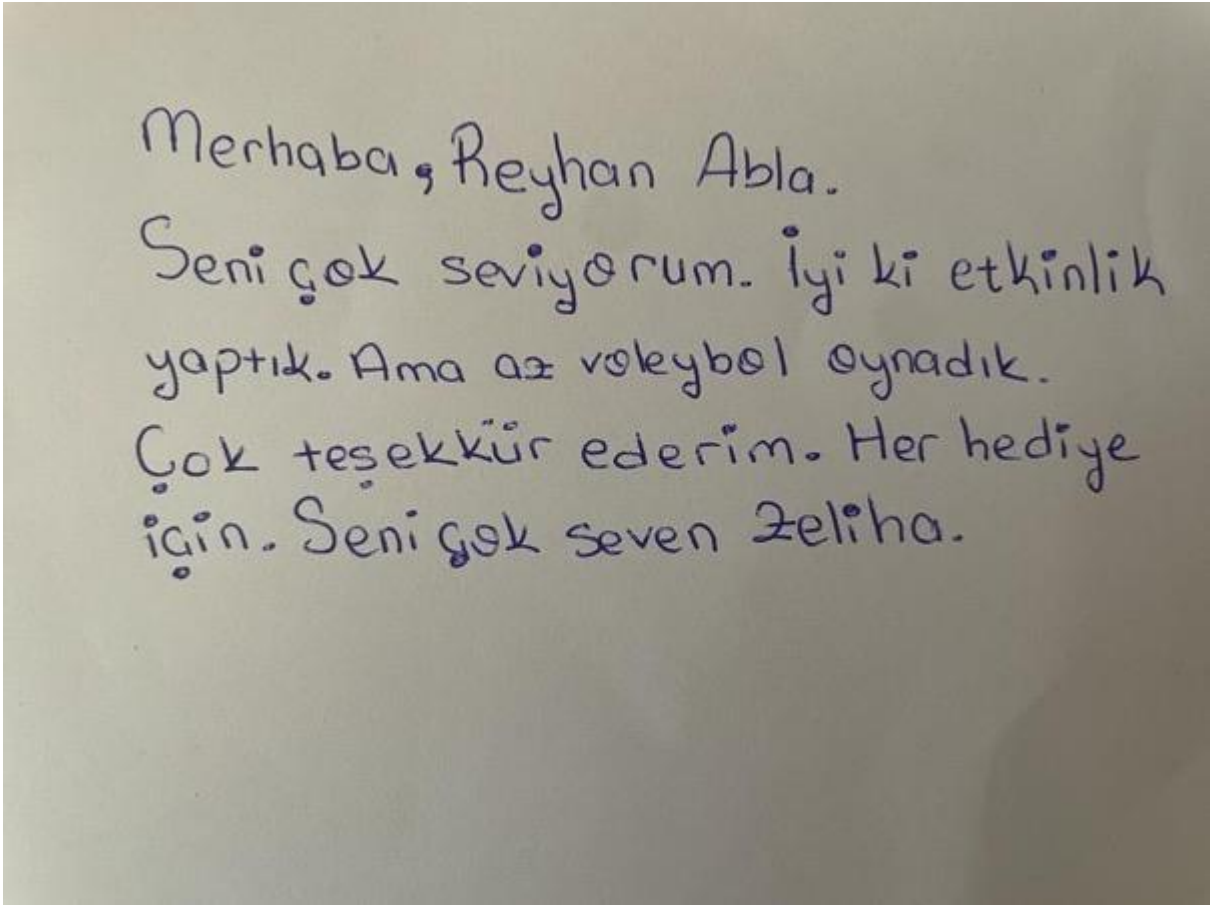 Merhaba, Reyhan Abla.
Seni çok seviyorum. İyi ki etkinlik
yaptık. Ama az voleybol oynadık.
Çok teşekkür ederim. Her hediye
için. Seni çok seven Zeliha.